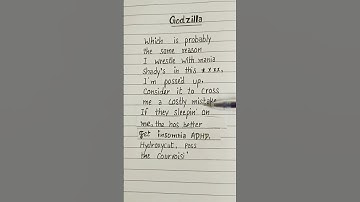 Godzilla
Which is probably
the same reason
I wrestle with mania
Shady's in this ****,
I'm possed up,
Consider it to cross
me a costly mistake
If they sleepin' on
me, the hos better
get insomnia ADHD,
Hydroxycut, Pass
the Courvoisi'